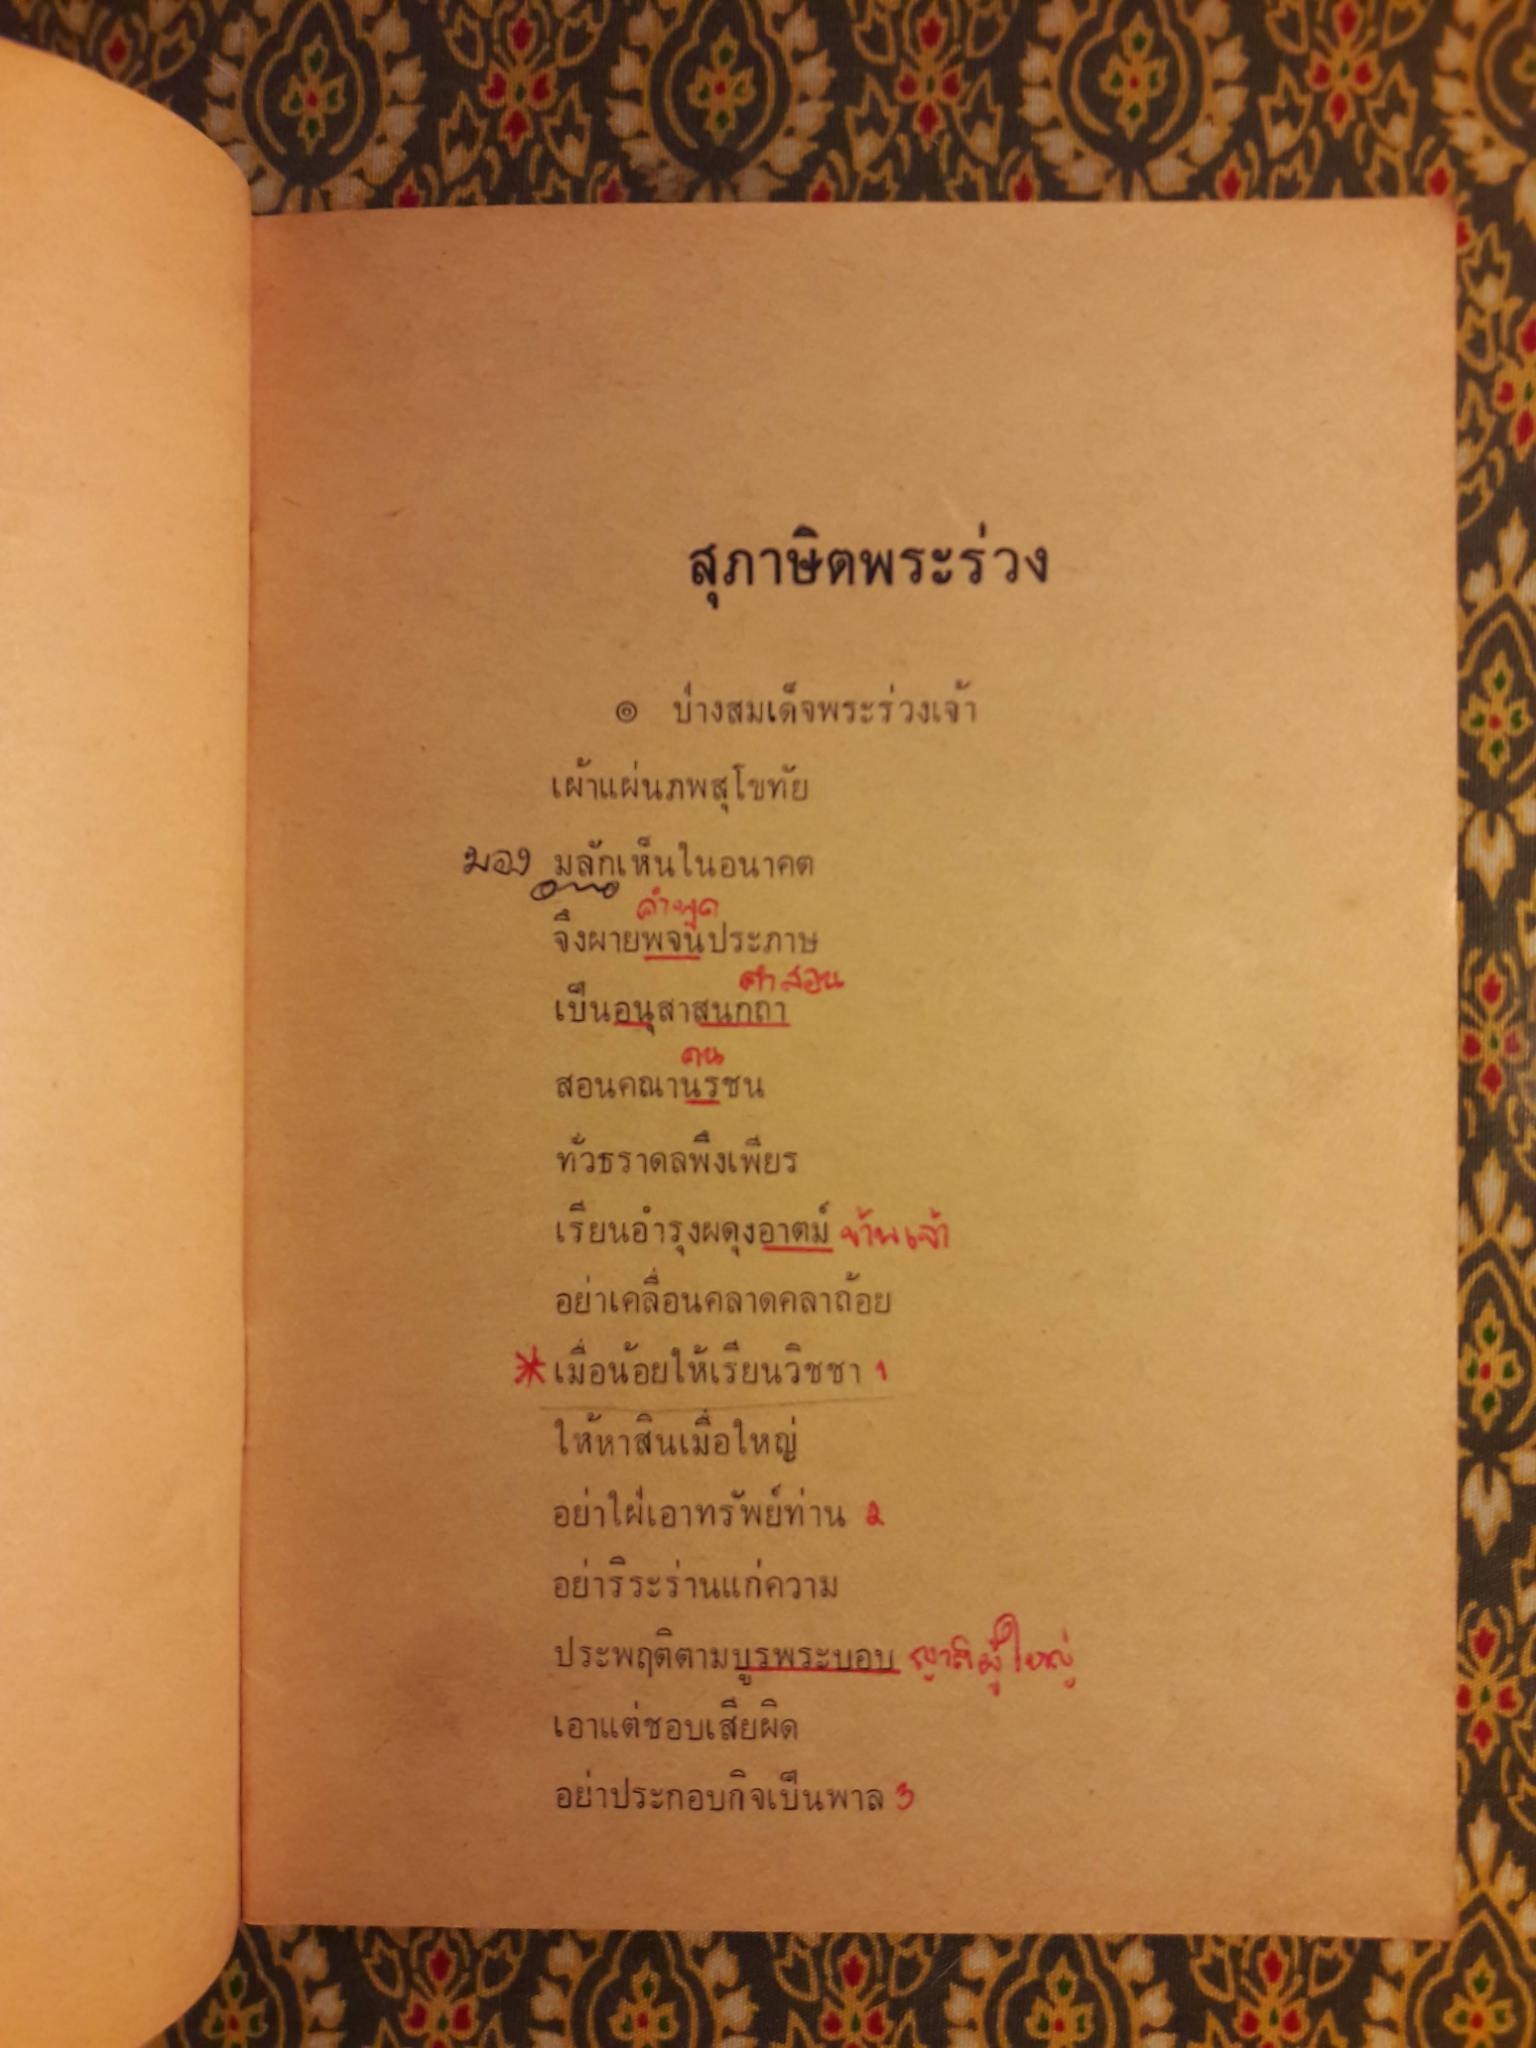 สุภาษิตพระร่วง
๏ ปางสมเด็จพระร่วงเจ้า
เผ้าแผ่นภพสุโขทัย
มอง มลักเห็นในอนาคต
คำพูด
จึงผายพจนประภาษ
คำสอน
เป็นอนุสาสนกถา
คน
สอนคณานรชน
ทั่วธราดลพึงเพียร
เรียนอำรุงผดุงอาตม์ ข้าพเจ้า
อย่าเคลื่อนคลาดคลาถ้อย
* เมื่อน้อยให้เรียนวิชชา 1
ให้หาสินเมื่อใหญ่
อย่าใฝ่เอาทรัพย์ท่าน 2
อย่าริระร่านแก่ความ
ประพฤติตามบูรพระบอบ ญาติผู้ใหญ่
เอาแต่ชอบเสียผิด
อย่าประกอบกิจเป็นพาล 3